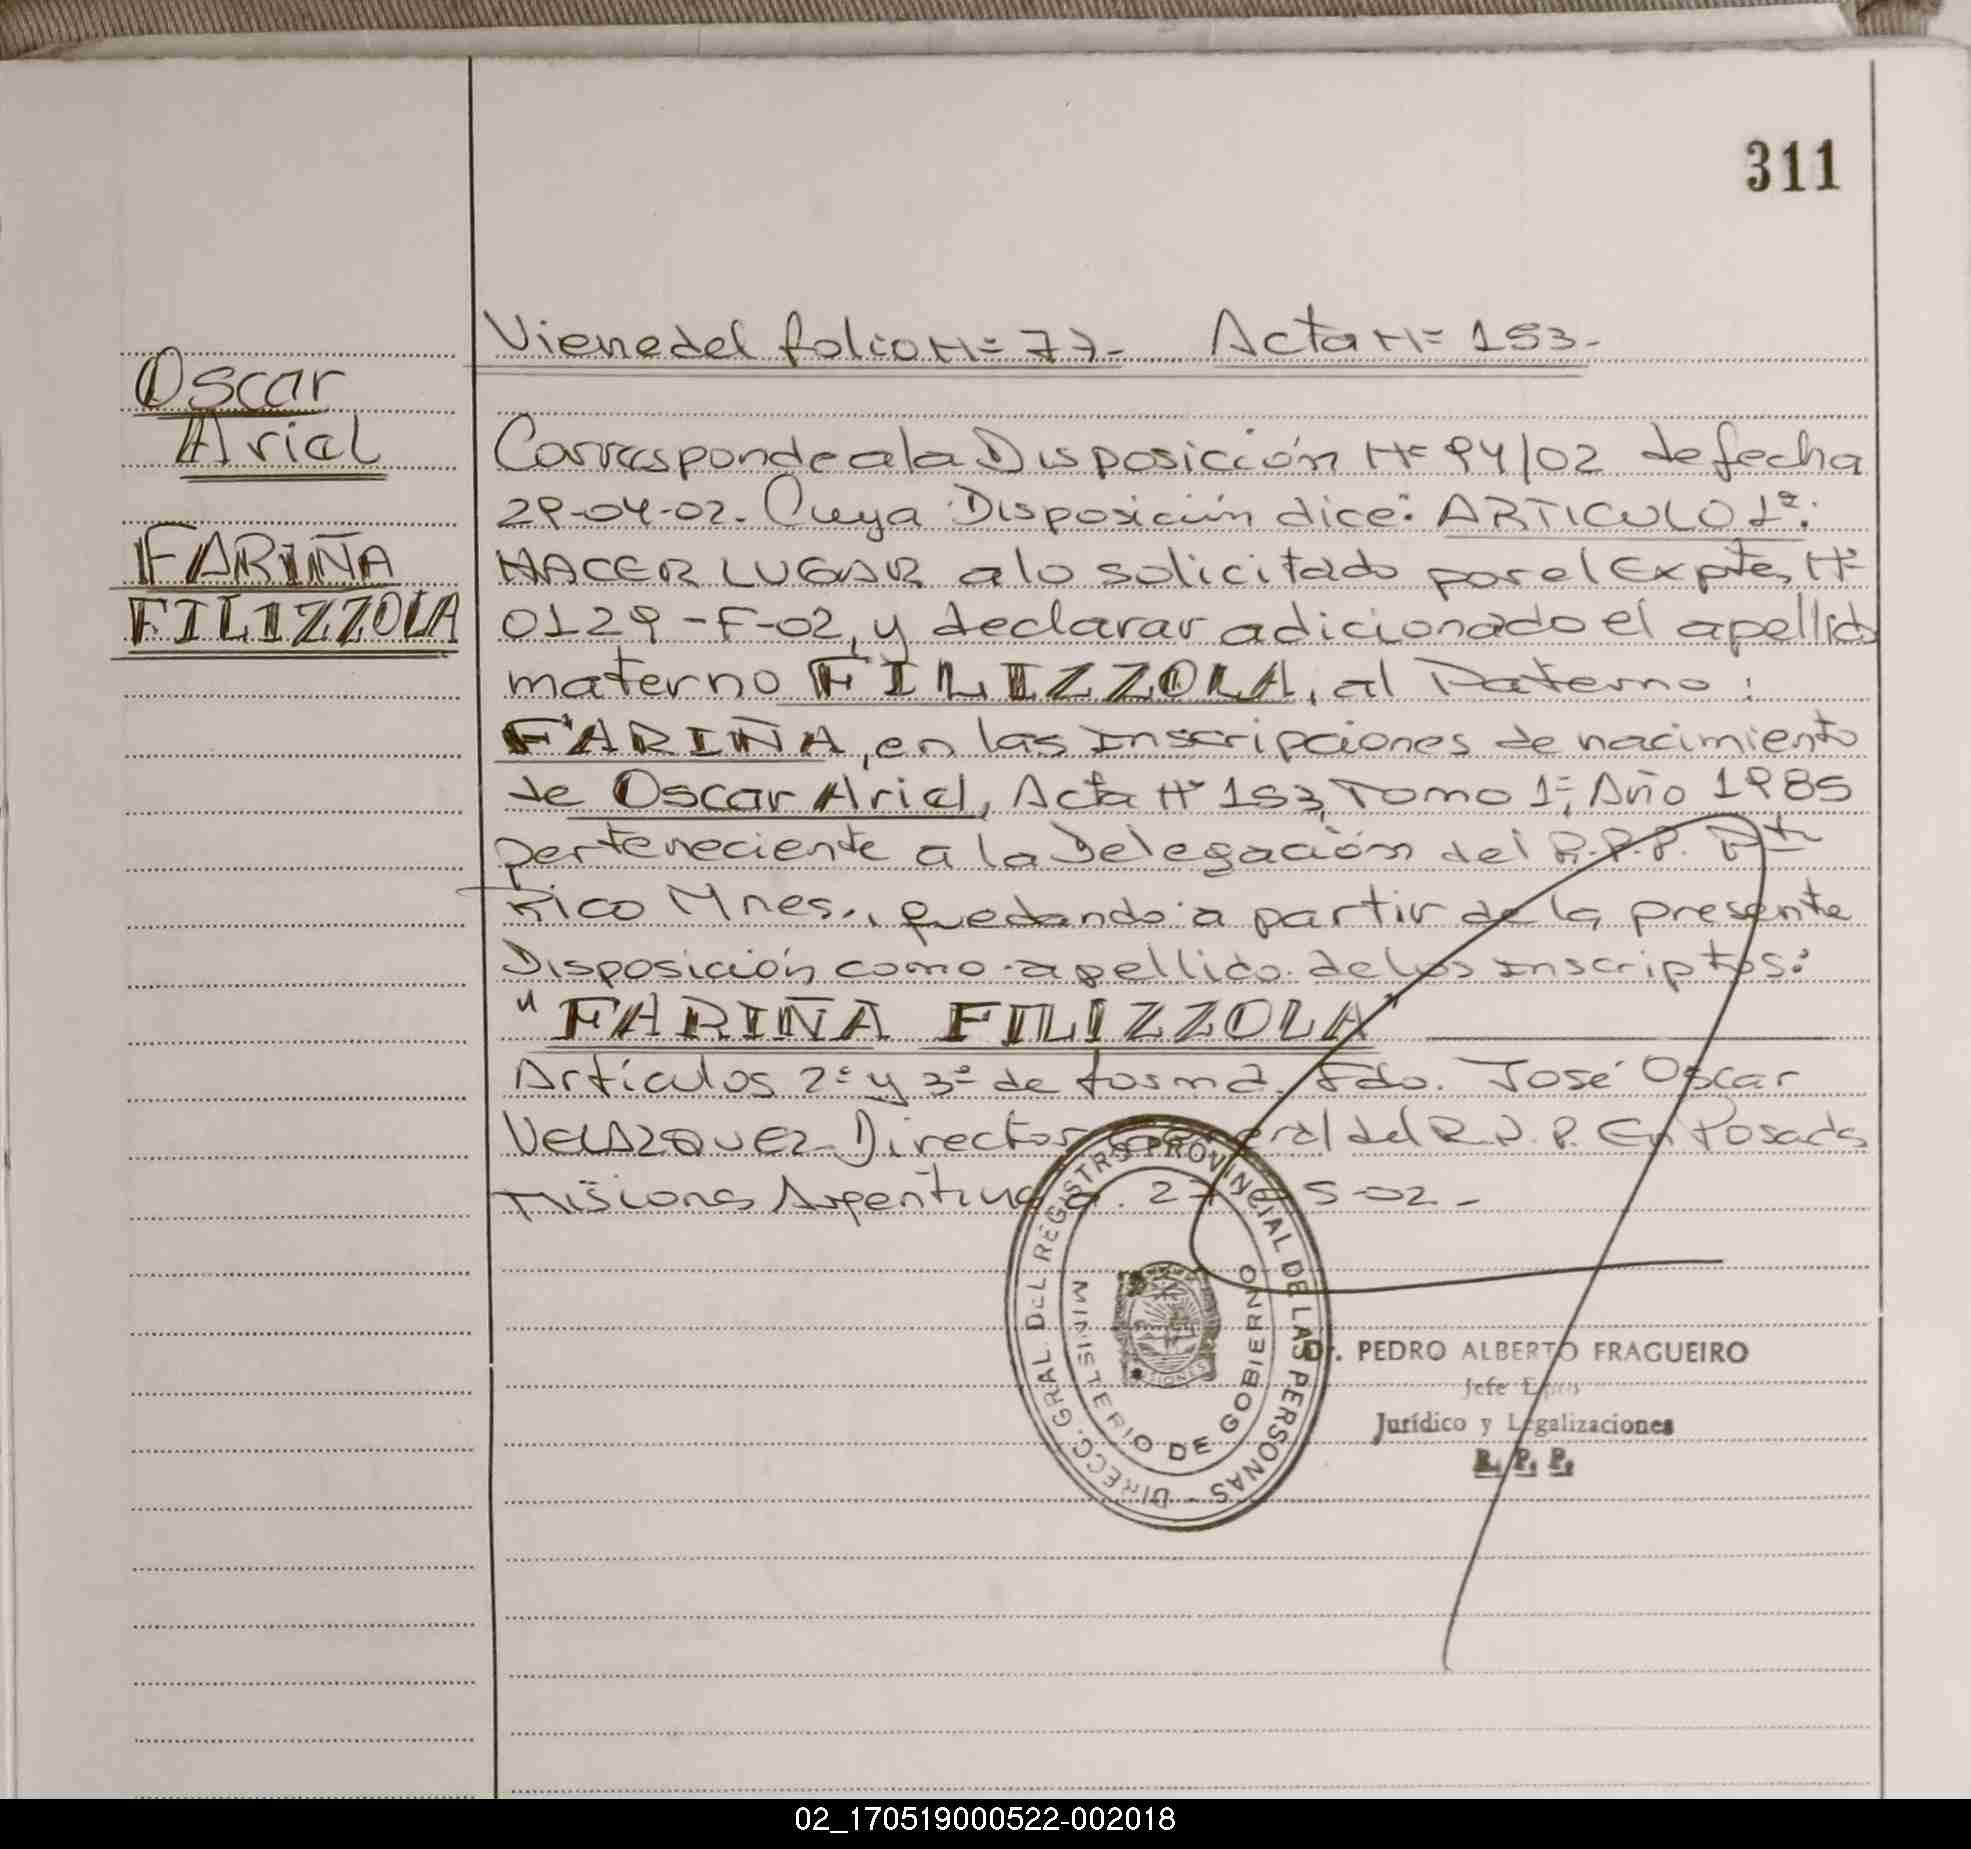 311
Viene del folio Nº 77- Acta Nº 153-
Oscar
Ariel
FARIÑA
FILIZZOLA
Corresponde a la Disposición Nº 94/02 de fecha
29-04-02. Cuya Disposición dice: ARTICULO 1º:
HACER LUGAR a lo solicitado por el Expte, Nº
0129-F-02, y declarar adicionado el apellido
materno FILIZZOLA, al Paterno:
FARIÑA, en las Inscripciones de nacimiento
de Oscar Ariel, Acta Nº 153, Tomo 1º, Año 1985
perteneciente a la Delegación del R.P.P. Pto
Rico Mnes., quedando a partir de la presente
Disposición como apellido de los inscriptos:
"FARIÑA FILIZZOLA"
Artículos 2º y 3º de forma. Fdo. José Oscar
VELAZQUEZ-Director General del R.P.P. En Posadas
Misiones Argentina a. 27 5-02-
DIRECC. GRAL. DEL REGISTRO PROVINCIAL DE LAS PERSONAS -
MINISTERIO DE GOBIERNO
MISIONES
Dr. PEDRO ALBERTO FRAGUEIRO
Jefe
Jurídico y Legalizaciones
R. P. P.
02_170519000522-002018